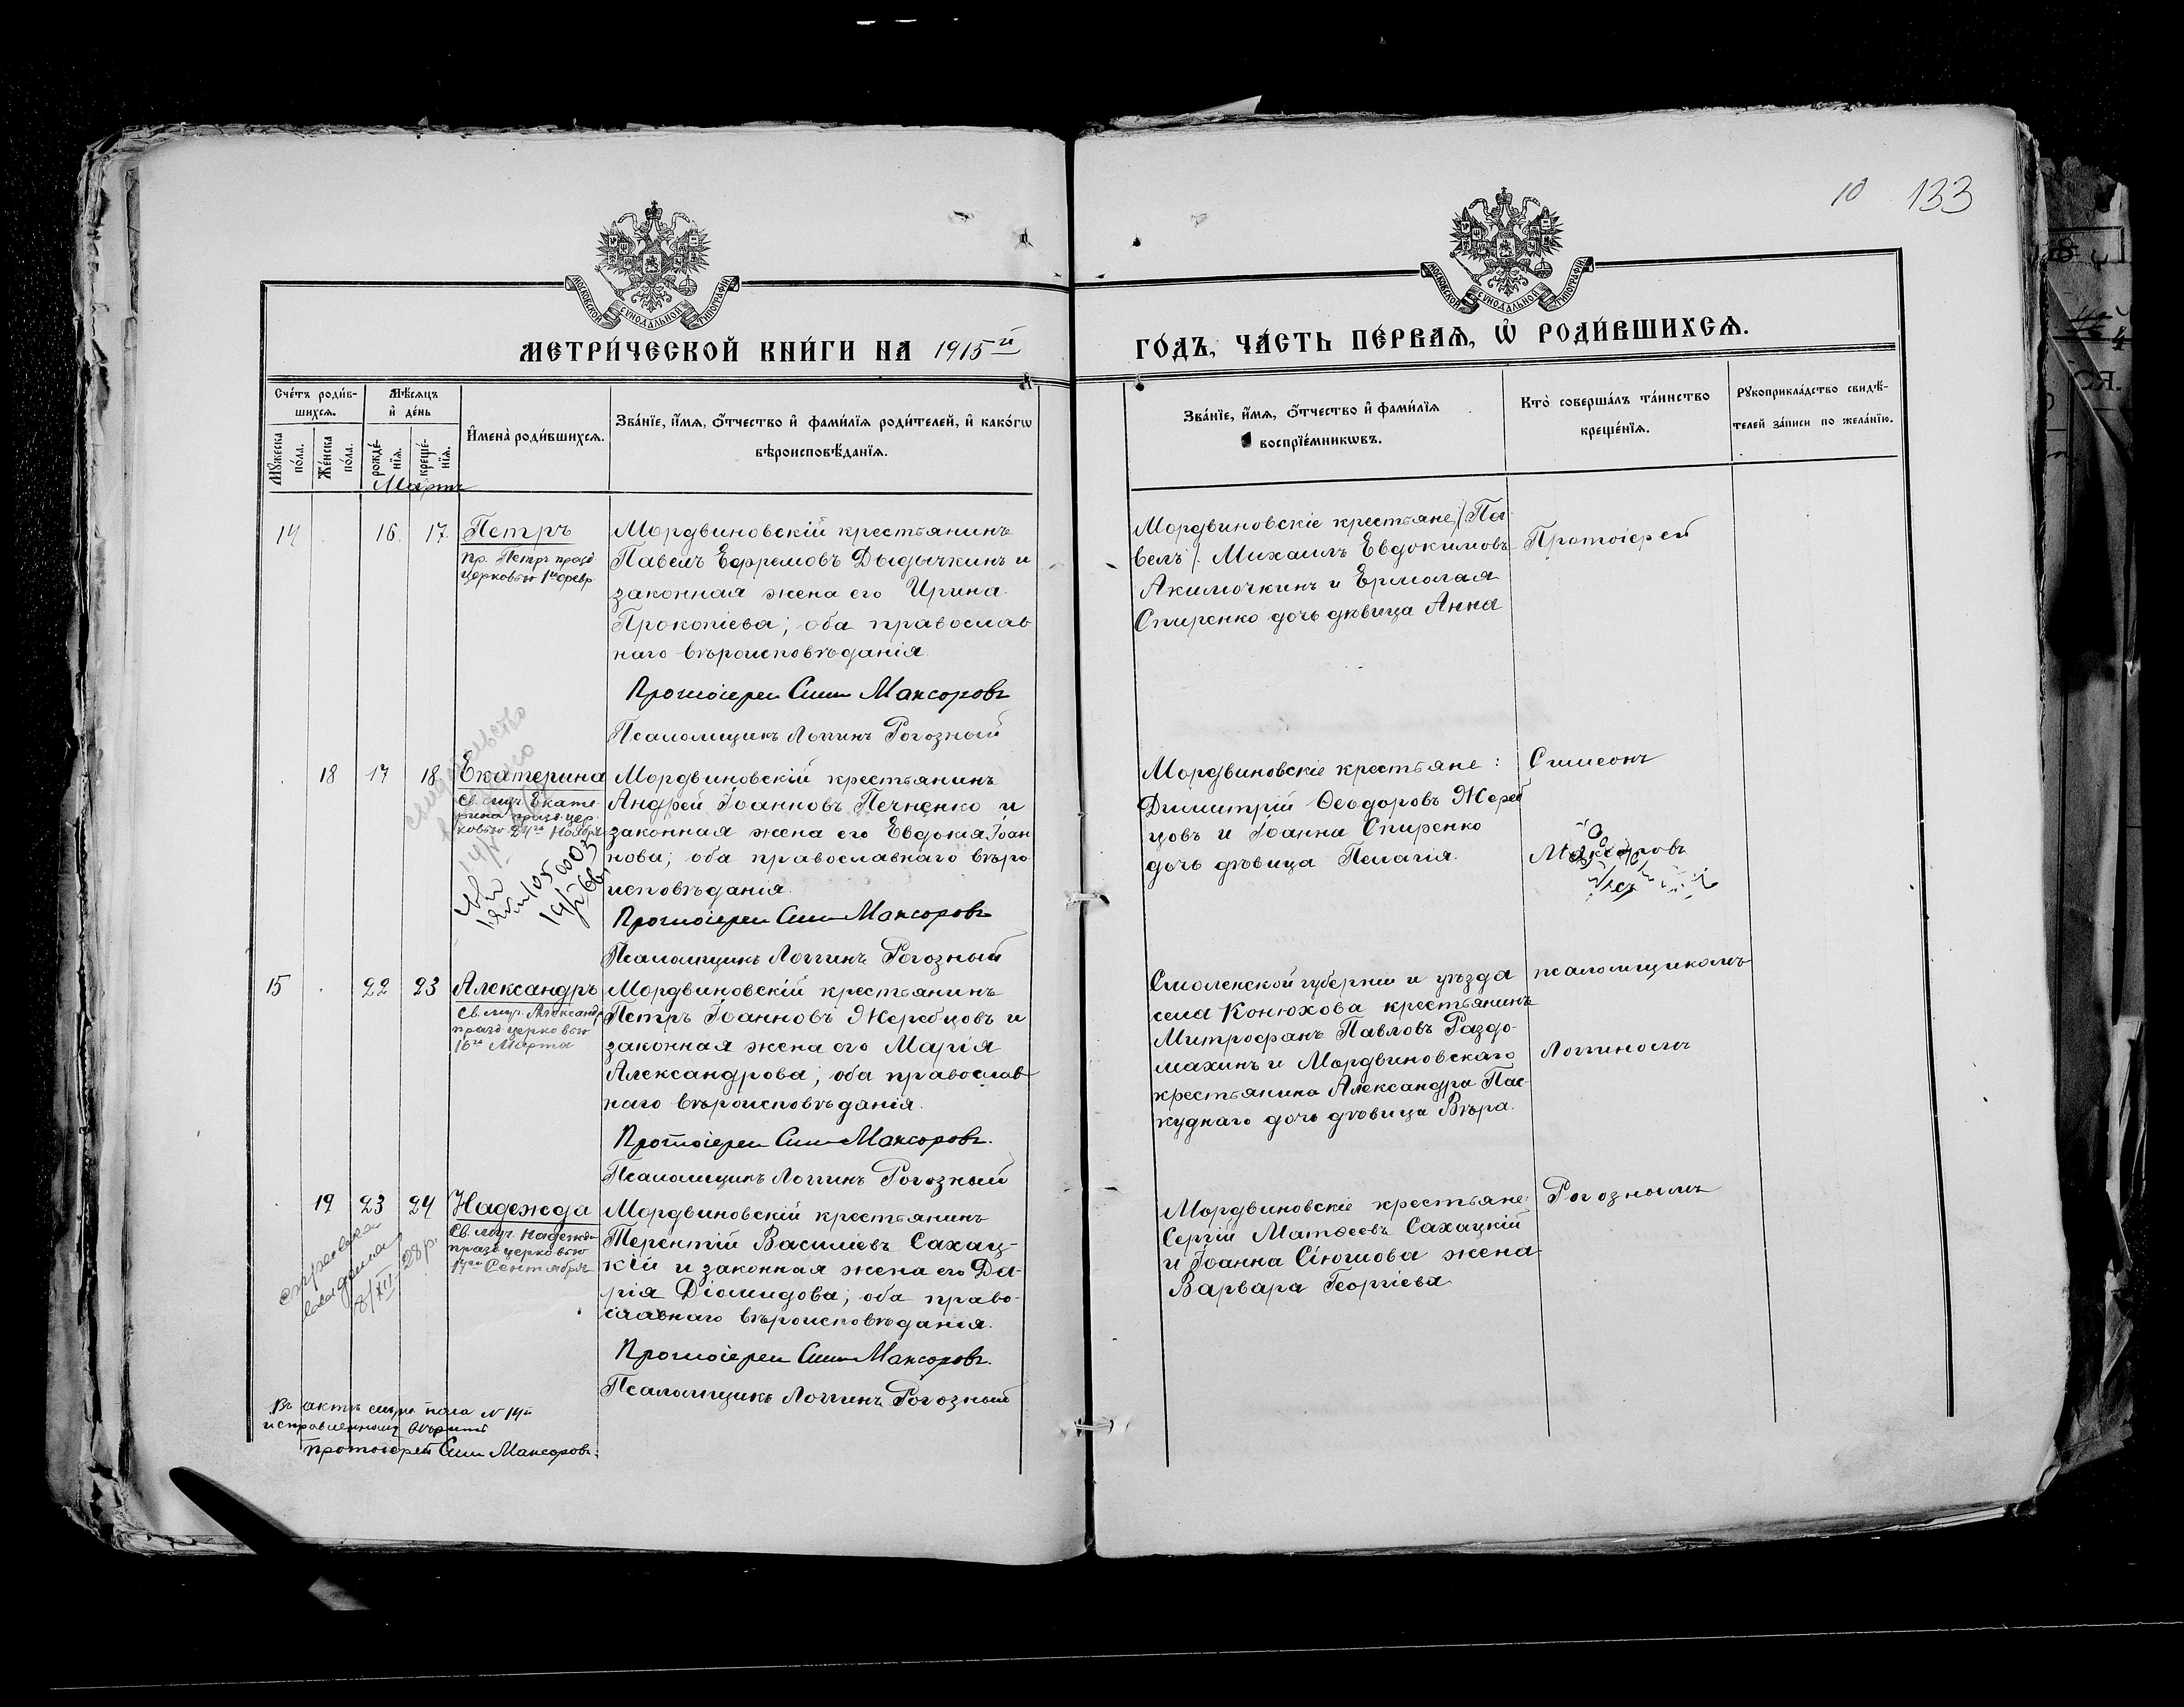 10 133
МОСКОВСКОЙ СѴНОДАЛЬНОЙ ТИПОГРАФІИ
МОСКОВСКОЙ СѴНОДАЛЬНОЙ ТИПОГРАФІИ
МЕТРИ́ЧЕСКОЙ КНИ́ГИ НА 1915й
ГО́ДЪ, ЧА́СТЬ ПЕ́РВАѦ, Ѽ РОДИ́ВШИХСѦ.
Сче́тъ роди́в-
шихсѧ.
Мꙋ́жеска по́ла.
Же́нска по́ла.
Мѣ́сѧцъ
и҆ де́нь
рожде́-
нїѧ.
креще́-
нїѧ.
И҆мена̀ роди́вшихсѧ.
Зва́нїе, и҆́мѧ, ѻ҆́тчество и҆ фами́лїѧ роди́телей, и҆ како́гѡ
вѣроисповѣ́данїѧ.
Зва́нїе, и҆́мѧ, ѻ҆́тчество и҆ фами́лїѧ
воспрїе́мникѡвъ.
Кто̀ соверша́лъ та́инство
креще́нїѧ.
Рꙋкоприкла́дство свидѣ́-
телей за́писи по жела́нїю.
Мартъ
14 16. 17. Петръ
Пр. Петръ празд
церковью 1го февр
Мордвиновскій крестьянинъ
Павелъ Ефремовъ Дыдычкинъ и
законная жена его Ирина
Прокопіева; оба православ
наго вѣроисповѣданія.
Протоіерей Сим Максоровъ
Псаломщикъ Логгинъ Рогозный
Мордвиновскіе крестьяне: /Па-
велъ/. Михаилъ Евдокимовъ
Акимочкинъ и Ермолая
Спиренко дочь дѣвица Анна
Протоіерей
18 17 18 Екатерина
Св. муч. Екате-
рина празд. цер-
ковью 24го Ноября
Мордвиновскій крестьянинъ
Андрей Іоанновъ Печненко и
законная жена его Евдокія Іоан
нова; оба православнаго вѣро
исповѣданія.
Протоіерей Сим Максоровъ
Псаломщикъ Логгинъ Рогозный
Мордвиновскіе крестьяне:
Димитрій Ѳеодоровъ Жереб
цовъ и Іоанна Спиренко
дочь дѣвица Пелагія.
Симеонъ
Максоровъ
15 22 23 Александръ
Св. муч. Александр
празд. церковью
16го Марта
Мордвиновскій крестьянинъ
Петръ Іоанновъ Жеребцовъ и
законная жена его Марія
Александрова; оба православ
наго вѣроисповѣданія.
Протоіерей Сим Максоровъ.
Псаломщикъ Логгинъ Рогозный
Смоленской губерніи и уѣзда
села Конюхова крестьянинъ
Митрофанъ Павловъ Раздо-
махинъ и Мордвиновскаго
крестьянина Александра Пас-
куднаго дочь дѣвица Вѣра.
псаломщикомъ
Логгиномъ
19 23 24 Надежда
Св. муч. Надежда
празд. церковью
17го Сентября
8/XII-28р.
Мордвиновскій крестьянинъ
Терентій Василіевъ Сахац-
кій и законная жена его Да-
рія Діомидова; оба право-
славнаго вѣроисповѣданія.
Протоіерей Сим Максоровъ.
Псаломщикъ Логгинъ Рогозный
Мордвиновскіе крестьяне:
Сергій Матѳеевъ Сахацкій
и Іоанна Сіюшова жена
Варвара Георгіева
Рогознымъ
Въ актѣ муж. пола № 14й
исправленному вѣрить
Протоіерей Сим Максоровъ.